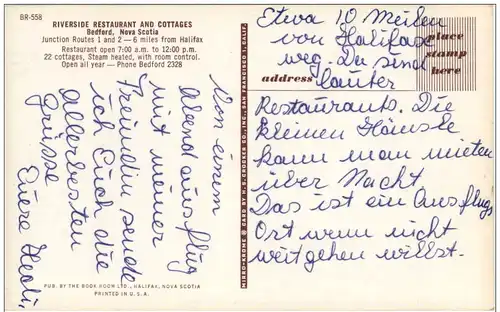 BR-558
RIVERSIDE RESTAURANT AND COTTAGES
Bedford, Nova Scotia
Junction Routes 1 and 2 — 6 miles from Halifax
Restaurant open 7:00 a.m. to 12:00 p.m.
22 cottages, Steam heated, with room control.
Open all year — Phone Bedford 2328
Von einem
Abendausflug
mit meiner
Freundin sende
ich Euch die
allerbesten
Grüsse
Eure Hedi,
PUB. BY THE BOOK ROOM LTD., HALIFAX, NOVA SCOTIA
PRINTED IN U. S. A.
MIRRO-KROME ® CARD BY H. S. CROCKER CO., INC., SAN FRANCISCO 1, CALIF.
address
place
stamp
here
Etwa 10 Meilen
von Halifax
weg. Da sind
lauter
Restaurants. Die
kleinen Häusle
kann man mieten
über Nacht
Das ist ein Ausflugs
Ort wenn nicht
weit gehen willst.